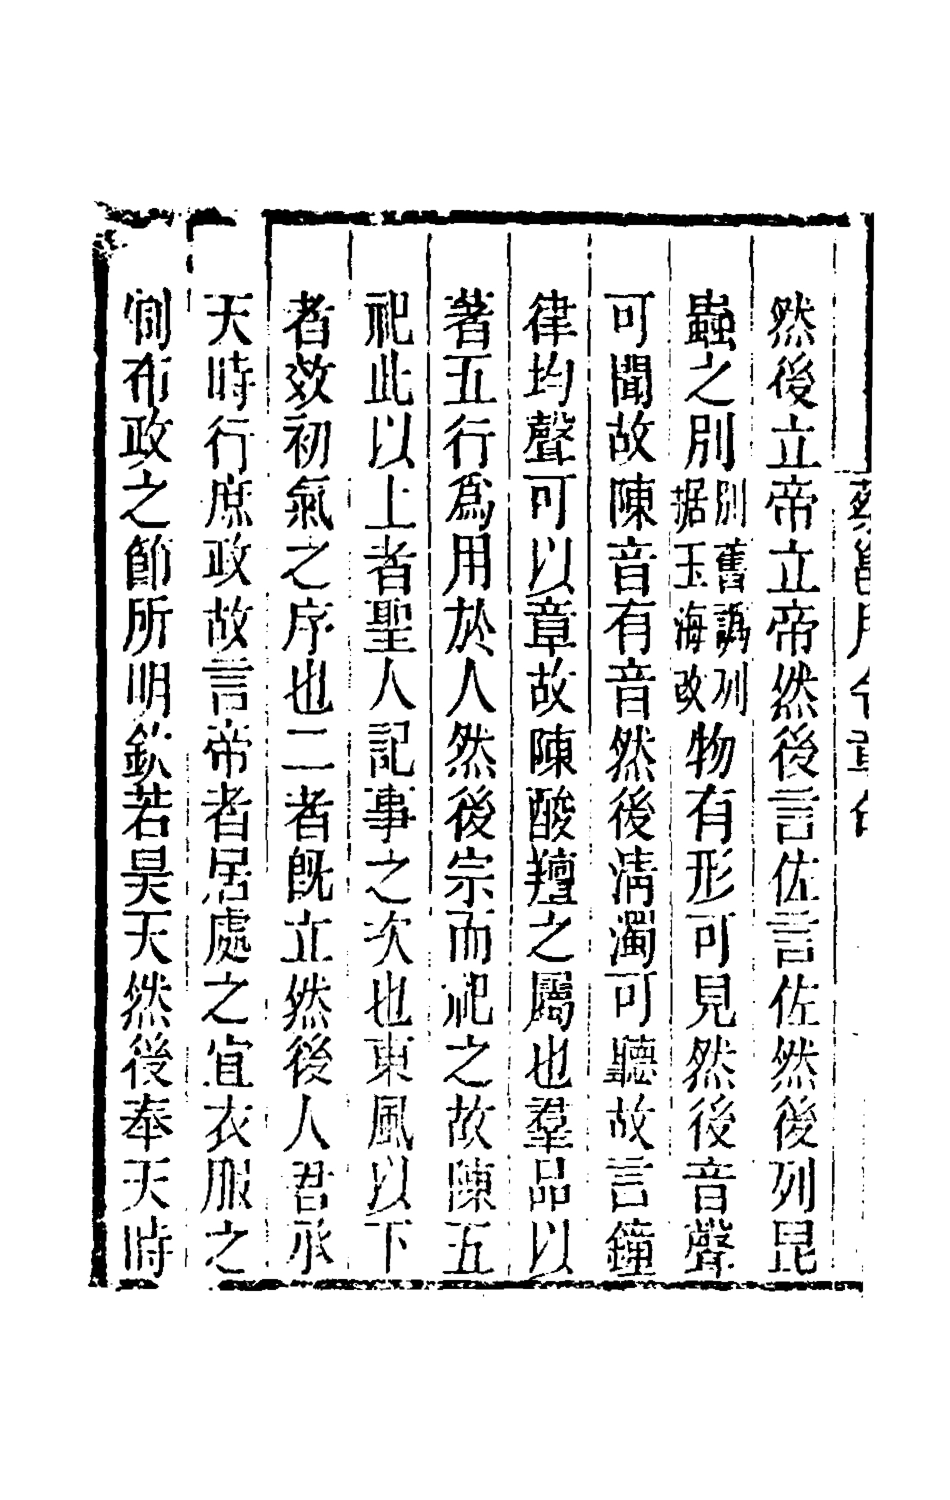 蔡邕月令章句
然後立帝立帝然後言佐言佐然後列昆
蟲之別別舊譌列据玉海改物有形可見然後音聲
可聞故陳音有音然後清濁可聽故言鐘
律均聲可以章故陳酸羶之屬也羣品以
著五行爲用於人然後宗而祀之故陳五
祀此以上者聖人記事之次也東風以下
者效初氣之序也二者旣立然後人君承
天時行庶政故言帝者居處之宜衣服之
制布政之節所明欽若昊天然後奉天時